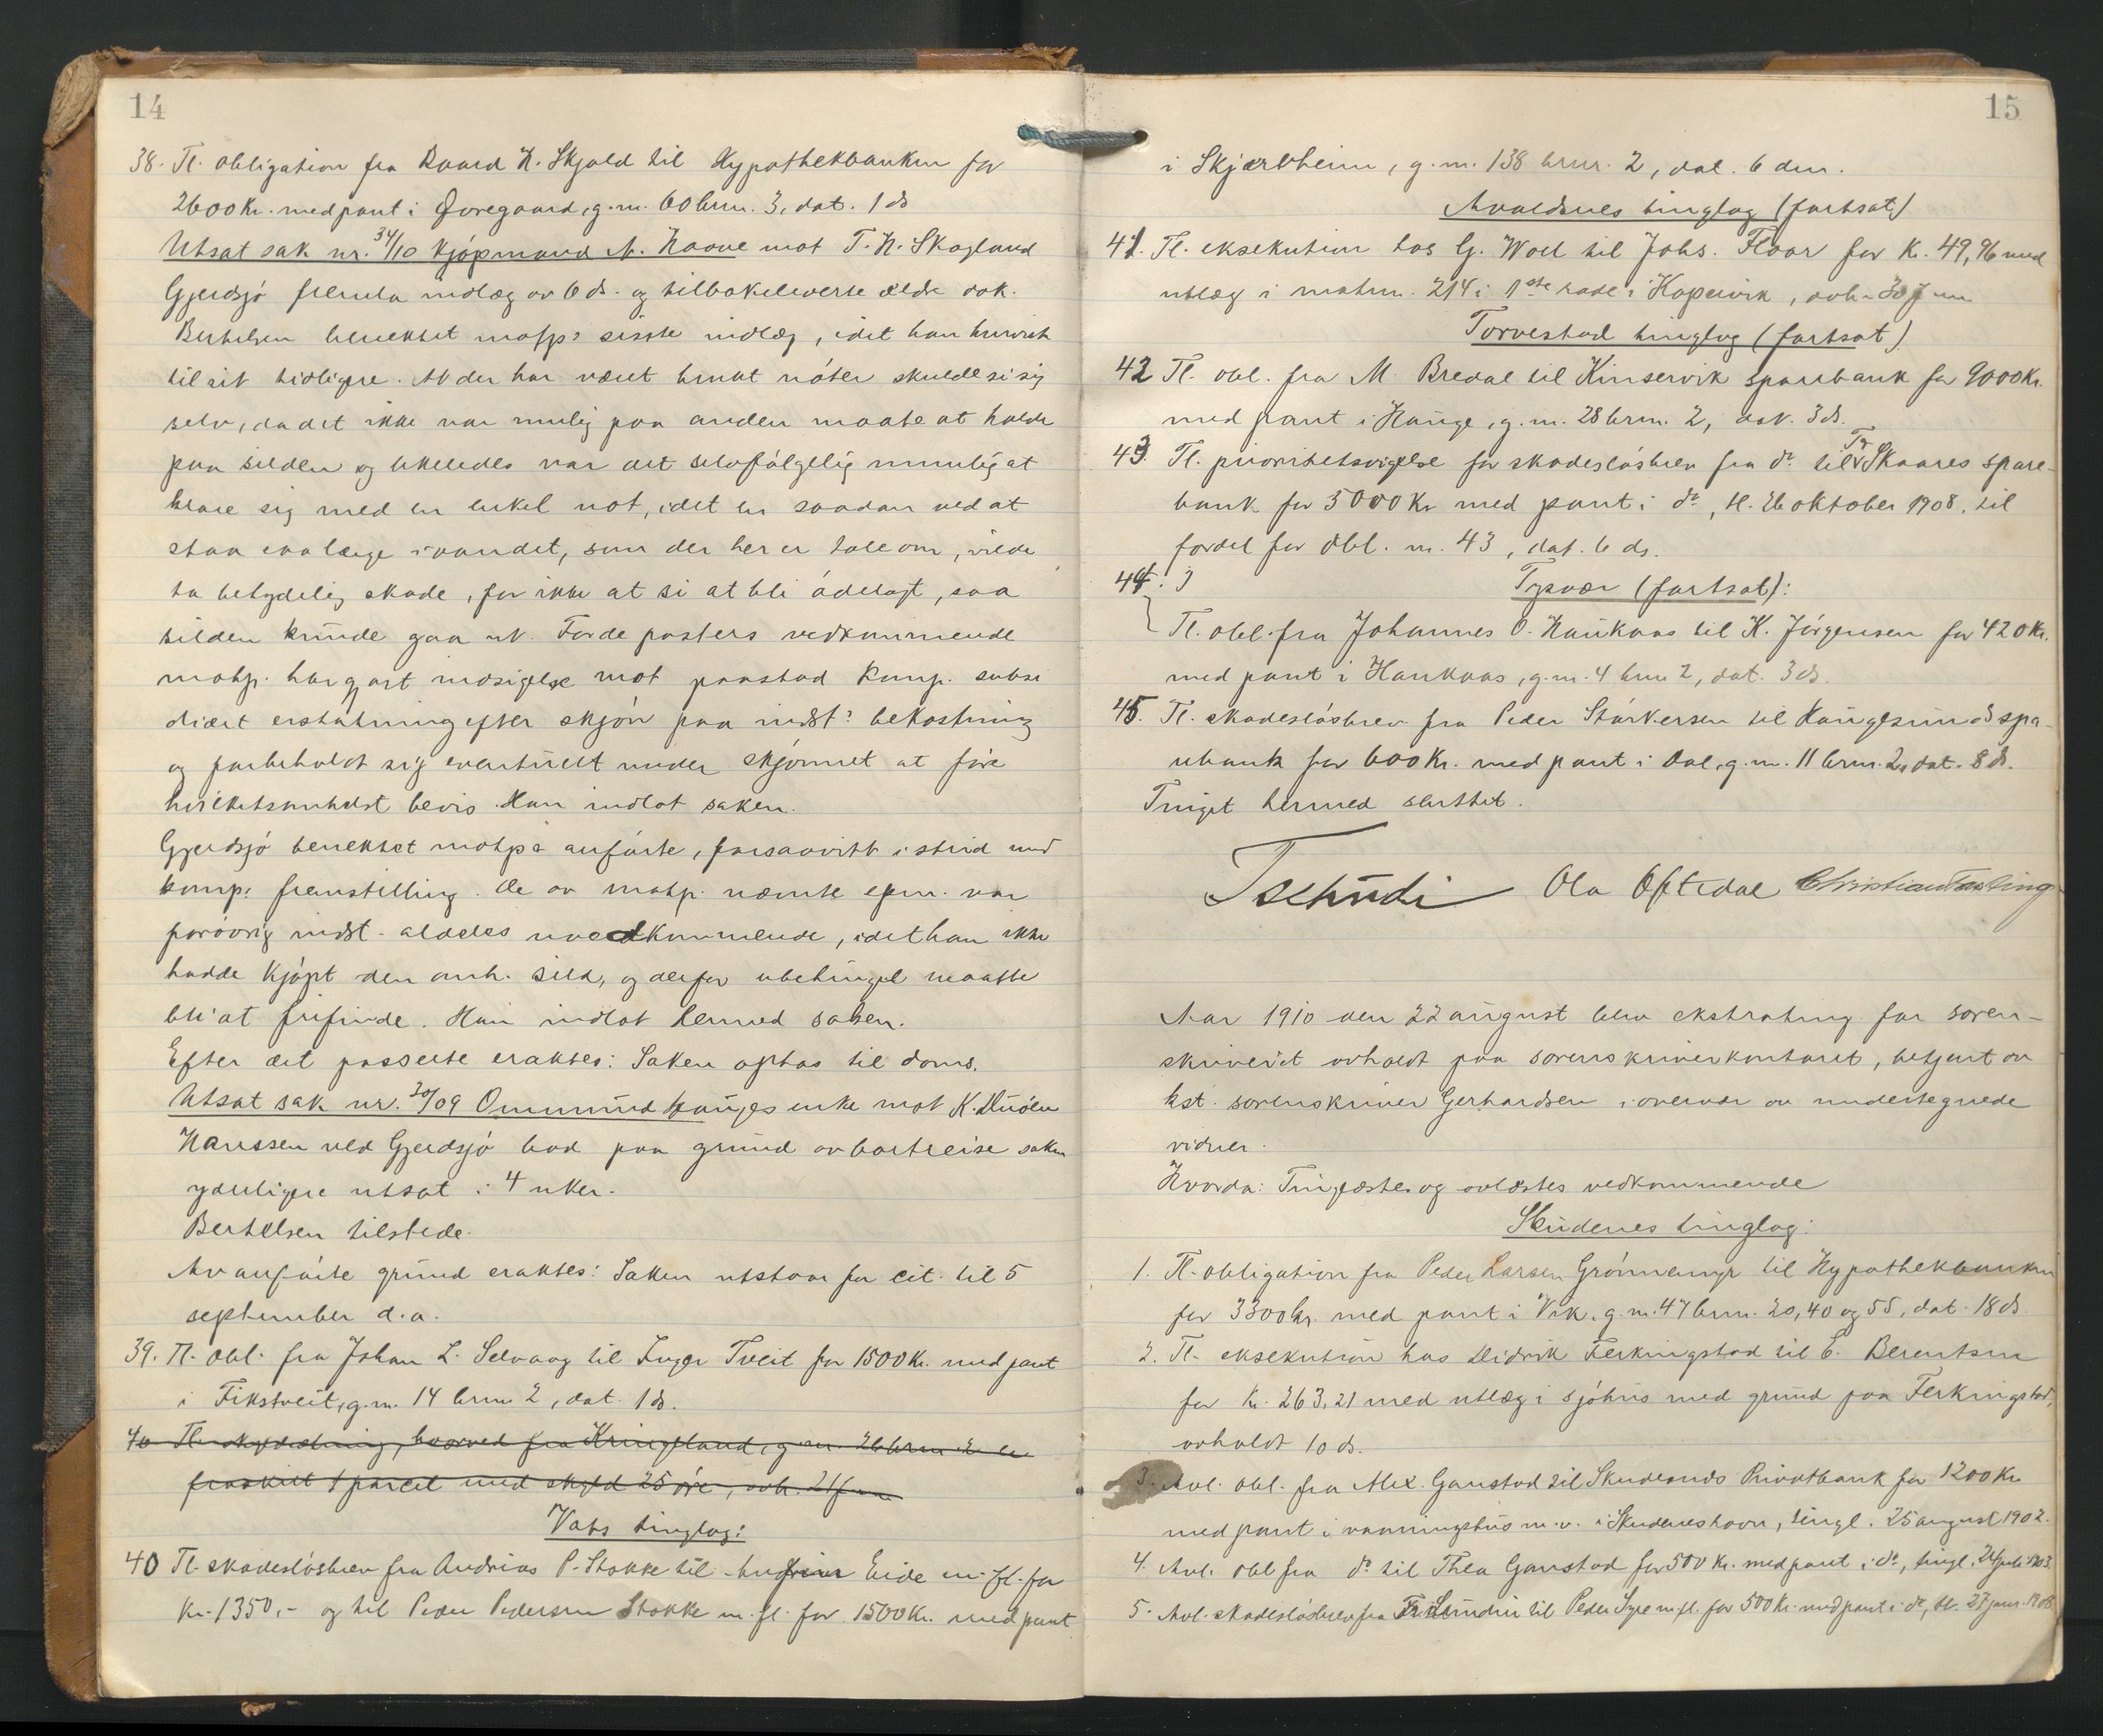 14
38. Tl. obligation fra Baard N. Skjold til Hypothekbanken for
2600 Kr. med pant i Øvregaard, g.nr. 60 brnr. 3, dat. 1 ds
Utsat sak nr. 34/10 Kjøpmand N. Naove mot T. N. Skogland
Gjerdsjø fremla indlæg av 6 ds. og tilbakeleverte ældre dok.
Bertelsen benektet motp's sisste indlæg, idet han henviste
til sit tidligere. At der har været brukt nøter skulde si sig
selv, da det ikke var mulig paa anden maate at holde
paa silden og likeledes var det selvfølgelig umulig at
klare sig med en enkel not, idet en saadan ved at
staa saa længe i vandet, som der her er tale om, vilde
ta betydelig skade, for ikke at si at bli ødelagt, saa
silden kunde gaa ut. For de posters vedkommende
motp. har gjort indsigelse mot paastod komp. subsi
diært erstatning efter skjøn paa indst's bekostning
og forbeholdt sig eventuelt under skjønnet at føre
hvilketsomhelst bevis. Han indlot saken.
Gjerdsjø benektet motps anførte, forsaavitt i strid med
komp's fremstilling. De av motp. nævnte epm. var
forøvrig indst. aldeles uvedkommende, idet han ikke
hadde kjøpt den omh. sild, og derfor ubetinget maatte
bli at frifinde. Han indlot hermed saken.
Efter det passerte eraktes: Saken optas til doms.
Utsat sak nr. 30/09 Ommund Hauges enke mot K. Duøen
Hanssen ved Gjerdsjø bad paa grund av bortreise saken
yderligere utsat i 4 uker.
Bertelsen tilstede.
Av anførte grund eraktes: Saken utstaar for cit. til 5
september d.a.
39. Tl. obl. fra Johan L. Selvaag til Inger Tveit for 1500 Kr. med pant
i Fikstveit, g.nr. 14 brnr. 2, dat. 1 ds.
40 Tl. skyldeling, hvorved fra Kringeland, g.nr. 26 brnr. 2 er
fraskilt 1 parcel med skyld 25 øre, avh. 21 f.m.
Vats tinglag:
40 Tl. skadesløsbrev fra Andrias P. Stokke til Eide m. fl. for
Kr. 1350,- og til Peder Pedersen Stokke m. fl. for 1500 Kr. med pant
15
i Skjærbheim, g.nr. 138 brnr. 2, dat. 6 dm.
Avaldsnes tinglag (fortsat)
41. Tl. eksekution hos G. Woll til Johs. Floor for Kr. 49,96 med
utlæg i matrnr. 214 i 1ste rode i Kopervik, avh. 30 f.m.
Torvestad tinglag (fortsat)
42 Tl. obl. fra M. Bredal til Kinservik sparebank for 9000 Kr.
med pant i Hauge, g.nr. 28 brnr. 2, dat. 3 ds.
43. Tl. prioritetsvigelse for skadesløsbrev fra do til Tv Skaares spare-
bank for 5000 Kr med pant i do, tl. 26 oktober 1908, til
fordel for obl. nr. 43, dat. 6 ds.
44. Tysvær (fortsat):
Tl. obl. fra Johannes O. Haukaas til K. Jørgensen for 420 Kr.
med pant i Haukaas, g.nr. 4 brnr 2, dat. 3 ds.
45. Tl. skadesløsbrev fra Peder Størkersen til Haugesunds spa-
rebank for 600 Kr. med pant i Dal, g.nr. 11 brnr. 2, dat. 8 ds.
Tinget hermed sluttet.
Tschudi Ola Oftedal Christian
Aar 1910 den 22 august blev ekstrating for soren-
skriveriet avholdt paa sorenskriverkontoret, betjent av
kst. sorenskriver Gerhardsen i overvær av undertegnede
vidner.
Hvorda: Tinglæstes og avlæstes vedkommende
Skudenes tinglag:
1. Tl. obligation fra Peder Larsen Grønnemyr til Hypothekbanken
for 3300 kr. med pant i Vik, g.nr. 47 brnr. 20, 40 og 55, dat. 18 ds
2. Tl. eksekution hos Didrik Ferkingstad til E. Berentsen
for Kr. 263,21 med utlæg i sjøhus med grund paa Ferkingstad,
avholdt 10 ds.
3. Avl. obl. fra Alex. Gaustad til Skudesnes Privatbank for 1200 Kr
med pant i vaaningshus m.v. i Skudeneshavn, tingl. 25 august 1902.
4. Avl. obl fra do til Thea Gaustad for 500 Kr. med pant i do, tingl. 24 juli 1903.
5. Avl. skadesløsbrev fra til Peder Syre m.fl. for 500 Kr. med pant i do, tl. 27 jan. 1908